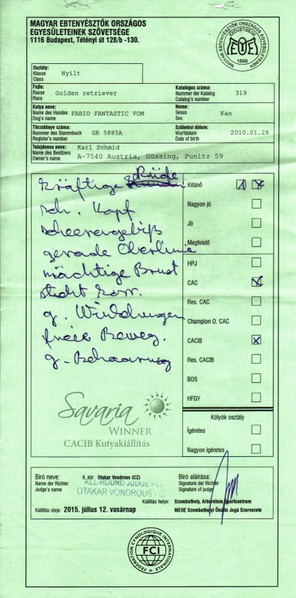 MAGYAR EBTENYÉSZTŐK ORSZÁGOS
EGYESÜLETEINEK SZÖVETSÉGE
1116 Budapest, Tétényi út 128/b -130.
Osztály:
Klasse
Class
Nyílt
Fajta:
Rasse
Race
Golden retriever
Katalógus száma:
Nummer der Katalog
Catalog's number
319
Kutya neve:
Name des Hundes
Dog's name
FABIO FANTASTIC VOM
Neme:
Sexus
Sex
Kan
Törzskönyv száma:
Nummer des Stammbuch
Register's number
GR 5885A
Születési dátum:
Wurfdatum
Date of birth
2010.01.28
Tulajdonos neve:
Name des Besitzers
Owner's name
Karl Schmid
A-7540 Austria, Güssing, Punitz 59
kräftige Rüde
sch. Kopf
Scherengebiß
gerade Oberlinie
mächtige Brust
g. Winklungen
freie Beweg.
g. Behaarung
Kitűnő
Nagyon jó
Jó
Megfelelő
HPJ
CAC
Res. CAC
Champion O. CAC
CACIB
Res. CACIB
BOS
HFGY
Kölyök osztály
Ígéretes
Nagyon ígéretes
Savaria
WINNER
CACIB Kutyakiállítás
Bíró neve:
Name der Richter
Judge's name
Otakar Vondrous (CZ)
ALL-ROUND JUDGE FCI
OTAKAR VONDROUS
Bíró aláírása:
Signature der Richter
Signature of judge
Kiállítás ideje: 2015. július 12. vasárnap
Kiállítás helye: Szombathely, Arborétum Sportcentrum
MEOE Szombathelyi Önálló Jogú Szervezete
FEDERATION CYNOLOGIQUE INTERNATIONALE
FCI